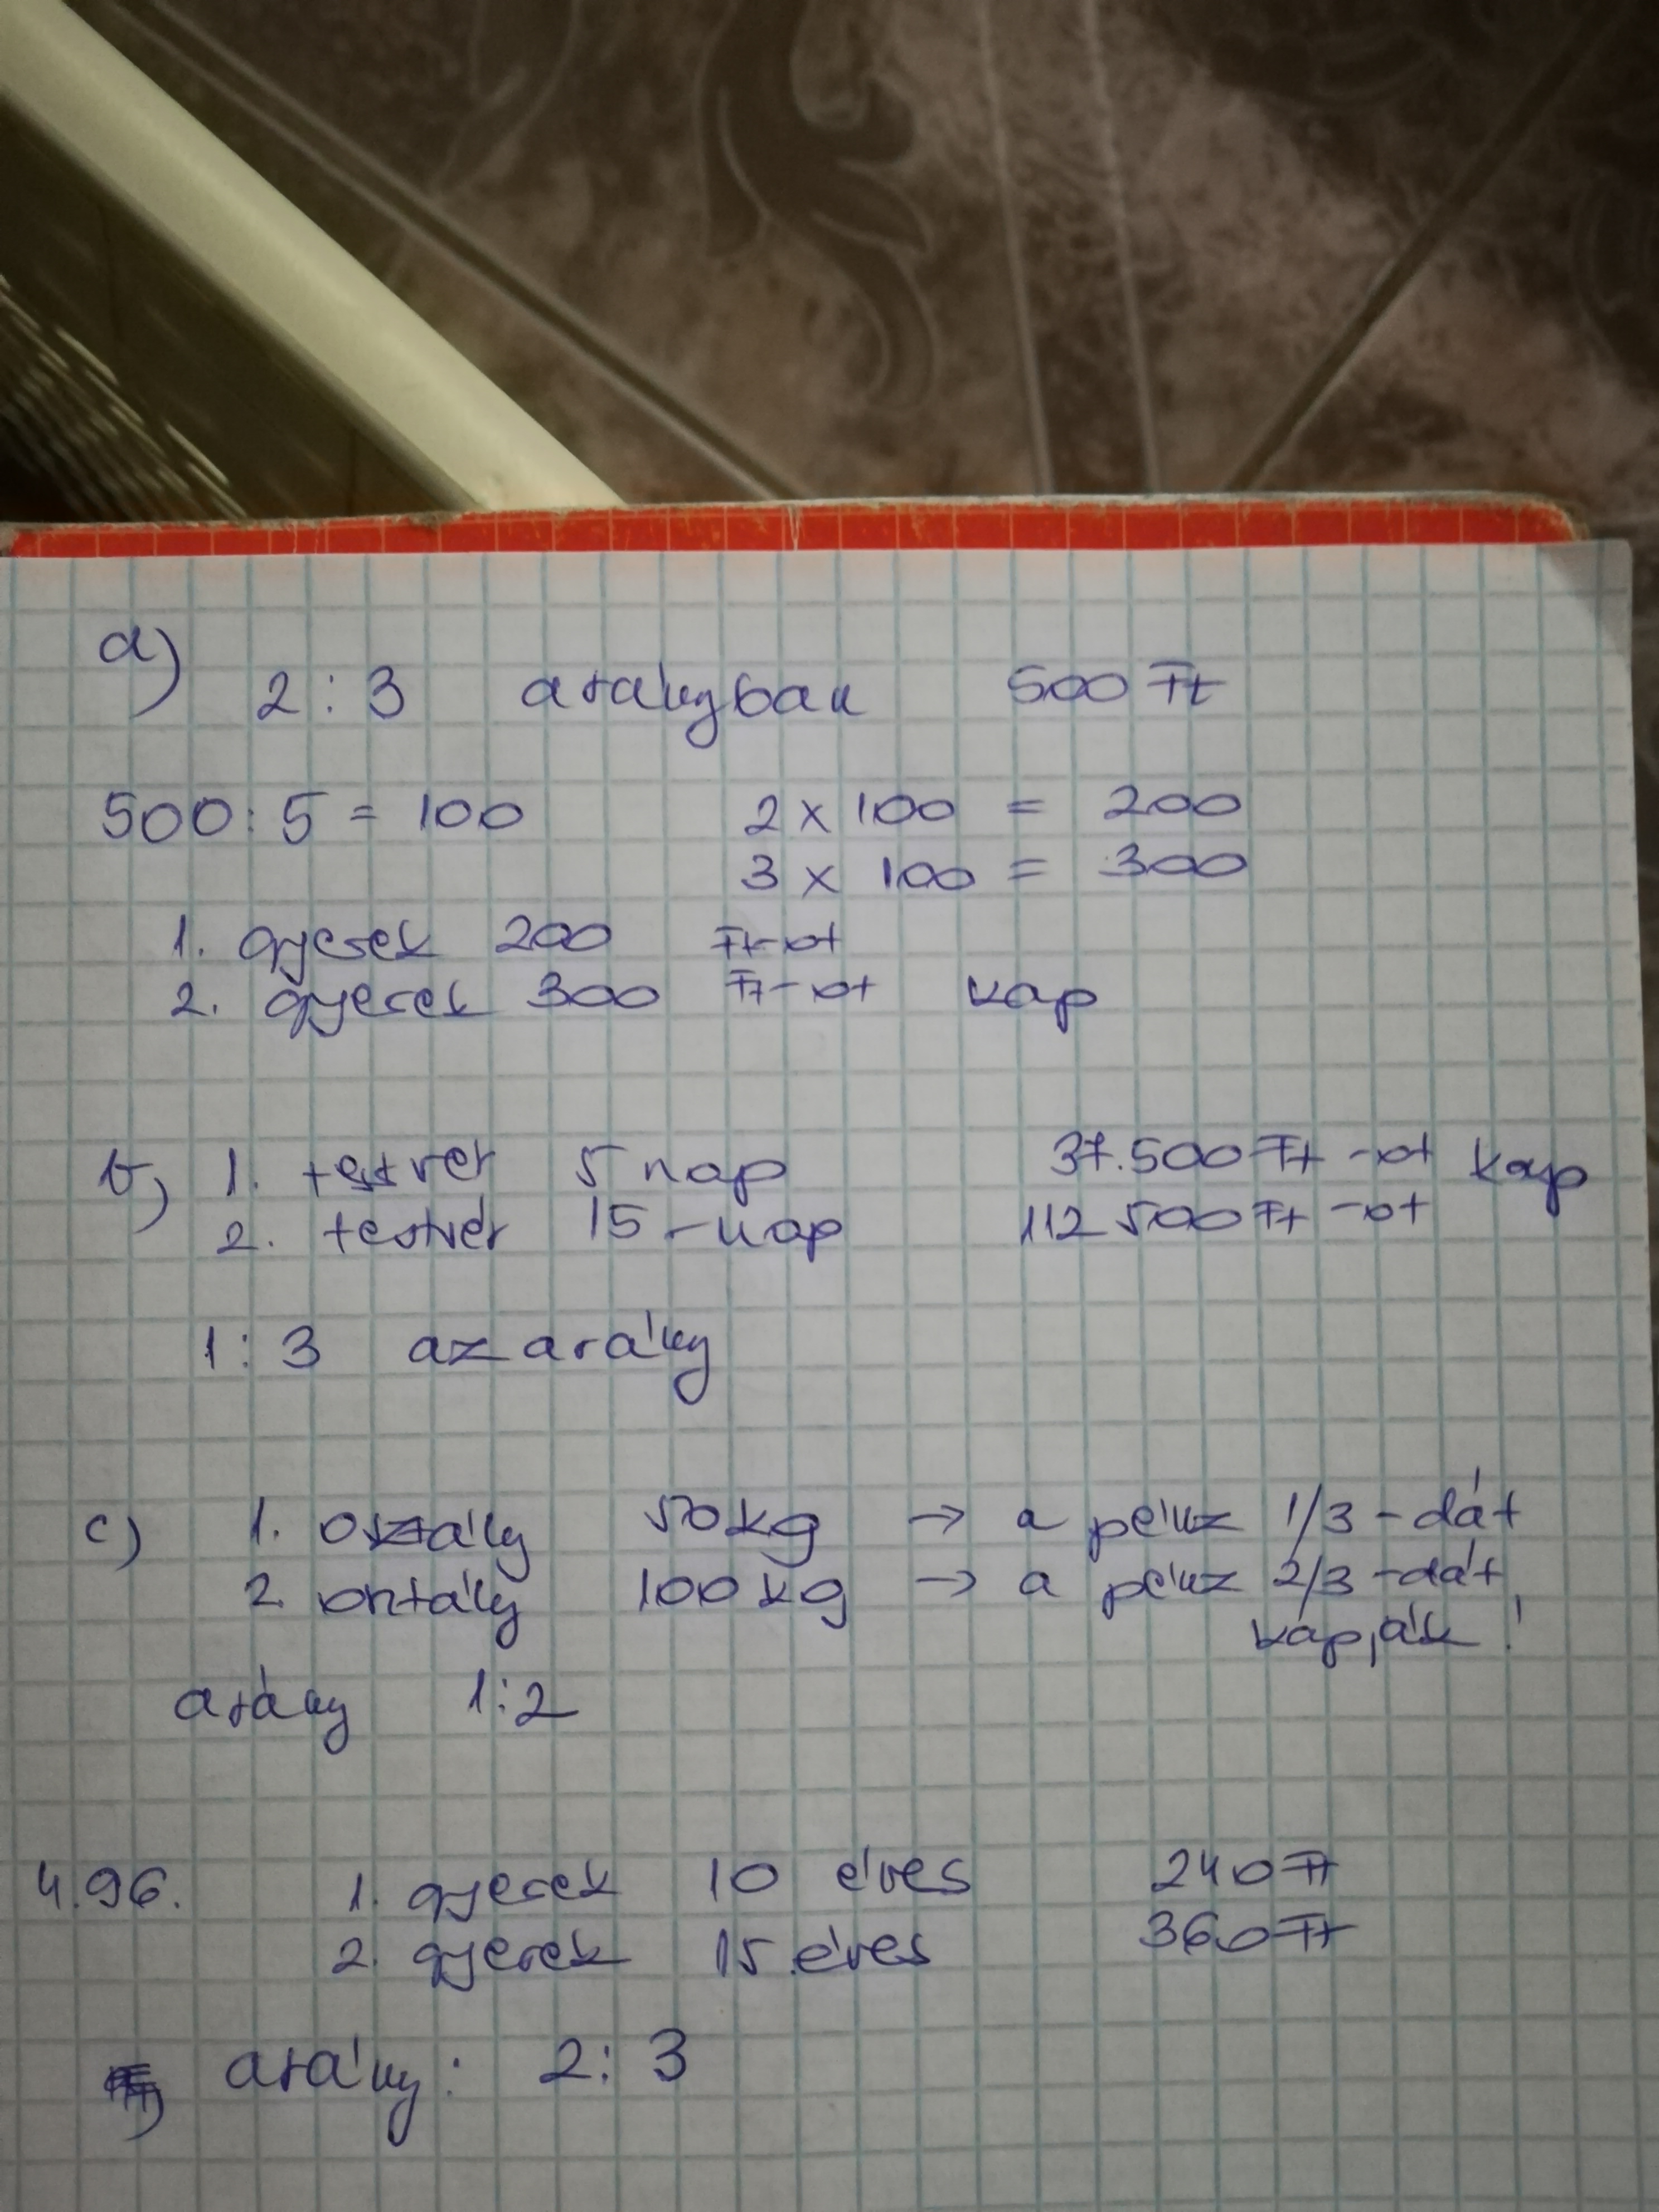 a)
2:3 arányban 500 Ft
500:5 = 100 2 x 100 = 200
3 x 100 = 300
1. gyerek 200 Ft-ot
2. gyerek 300 Ft-ot kap
b) 1. testvér 5 nap 37.500 Ft-ot kap
2. testvér 15-nap 112 500 Ft-ot
1:3 az arány
c) 1. osztály 50 kg → a pénz 1/3-dát
2. osztály 100 kg → a pénz 2/3-dát
kapják!
arány 1:2
4.96. 1. gyerek 10 éves 240 Ft
2. gyerek 15 éves 360 Ft
arány: 2:3